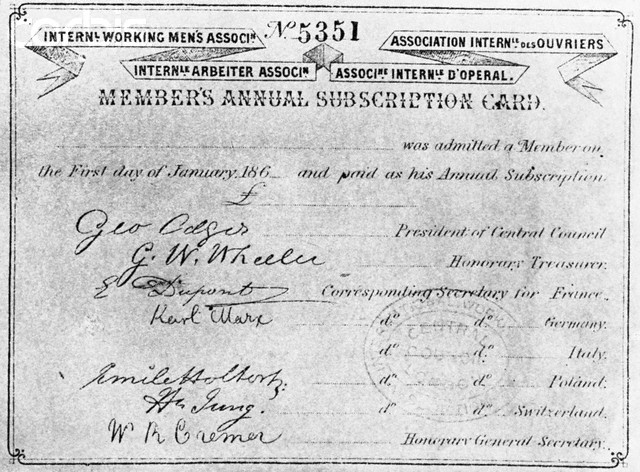 No 5351
INTERNL WORKING MEN'S ASSOCIN
ASSOCIATION INTERNLE DES OUVRIERS
INTERNLE ARBEITER ASSOCIN
ASSOCINE INTERNLE D'OPERAL.
MEMBER'S ANNUAL SUBSCRIPTION CARD.
was admitted a Member on
the First day of January, 186 and paid as his Annual Subscription
£
Geo Odger President of Central Council
G. W. Wheeler Honorary Treasurer.
E Dupont Corresponding Secretary for France.
Karl Marx do. do. Germany.
do. do. Italy.
Emile Holtorp. do. do. Poland.
Hn Jung. do. do. Switzerland.
W R Cremer Honorary General Secretary.
CENTRAL